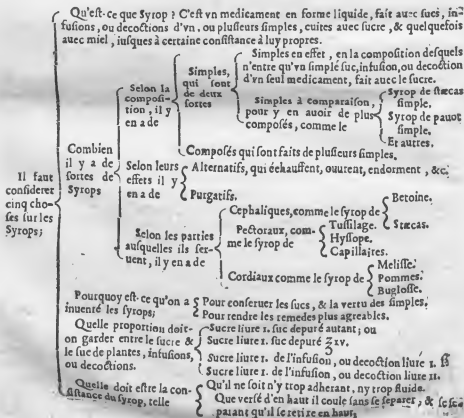 Qu'eſt-ce que Syrop ? C'eſt vn medicament en forme liquide, fait auec ſucs, in-
fuſions, ou decoctions d'vn, ou pluſieurs ſimples, cuites auec ſucre, & quelquefois
auec miel, iuſques à certaine conſiſtance à luy propres.
Il faut
conſiderer
cinq cho-
ſes ſur les
Syrops;
Combien
il y a de
ſortes de
Syrops
Selon la
compoſi-
tion, il y
en a de
Simples,
qui ſont
de deux
ſortes
Simples en effet, en la compoſition deſquels
n'entre qu'vn ſimple ſuc, infuſion, ou decoction
d'vn ſeul medicament, fait auec le ſucre.
Simples à comparaiſon,
pour y en auoir de plus
compoſés, comme le
Syrop de ſtæcas
ſimple.
Syrop de pauot
ſimple.
Et autres.
Compoſés qui ſont faits de pluſieurs ſimples.
Selon leurs
effets il y
en a de
Alternatifs, qui échauffent, ouurent, endorment, &c.
Purgatifs.
Selon les parties
auſquelles ils ſer-
uent, il y en a de
Cephaliques, comme le ſyrop de
Betoine.
Stæcas.
Pectoraux, com-
me le ſyrop de
Tuſſilage.
Hyſſope.
Capillaires.
Cordiaux comme le ſyrop de
Meliſſe.
Pommes.
Bugloſſe.
Pourquoy eſt-ce qu'on a
inuenté les ſyrops;
Pour conſeruer les ſucs, & la vertu des ſimples.
Pour rendre les remedes plus agreables.
Quelle proportion doit-
on garder entre le ſucre &
le ſuc de plantes, infuſions,
ou decoctions.
Sucre liure 1. ſuc depuré autant; ou
Sucre liure 1. ſuc depuré ℥ xv.
Sucre liure 1. de l'infuſion, ou decoction liure 1. ß
Sucre liure 1. de l'infuſion, ou decoction liure 11.
Quelle doit eſtre la con-
ſiſtance du ſyrop, telle
Qu'il ne ſoit n'y trop adherant, ny trop fluide.
Que verſé d'en haut il coule ſans ſe ſeparer, & ſe ſe-
parant qu'il ſe retire en haut.